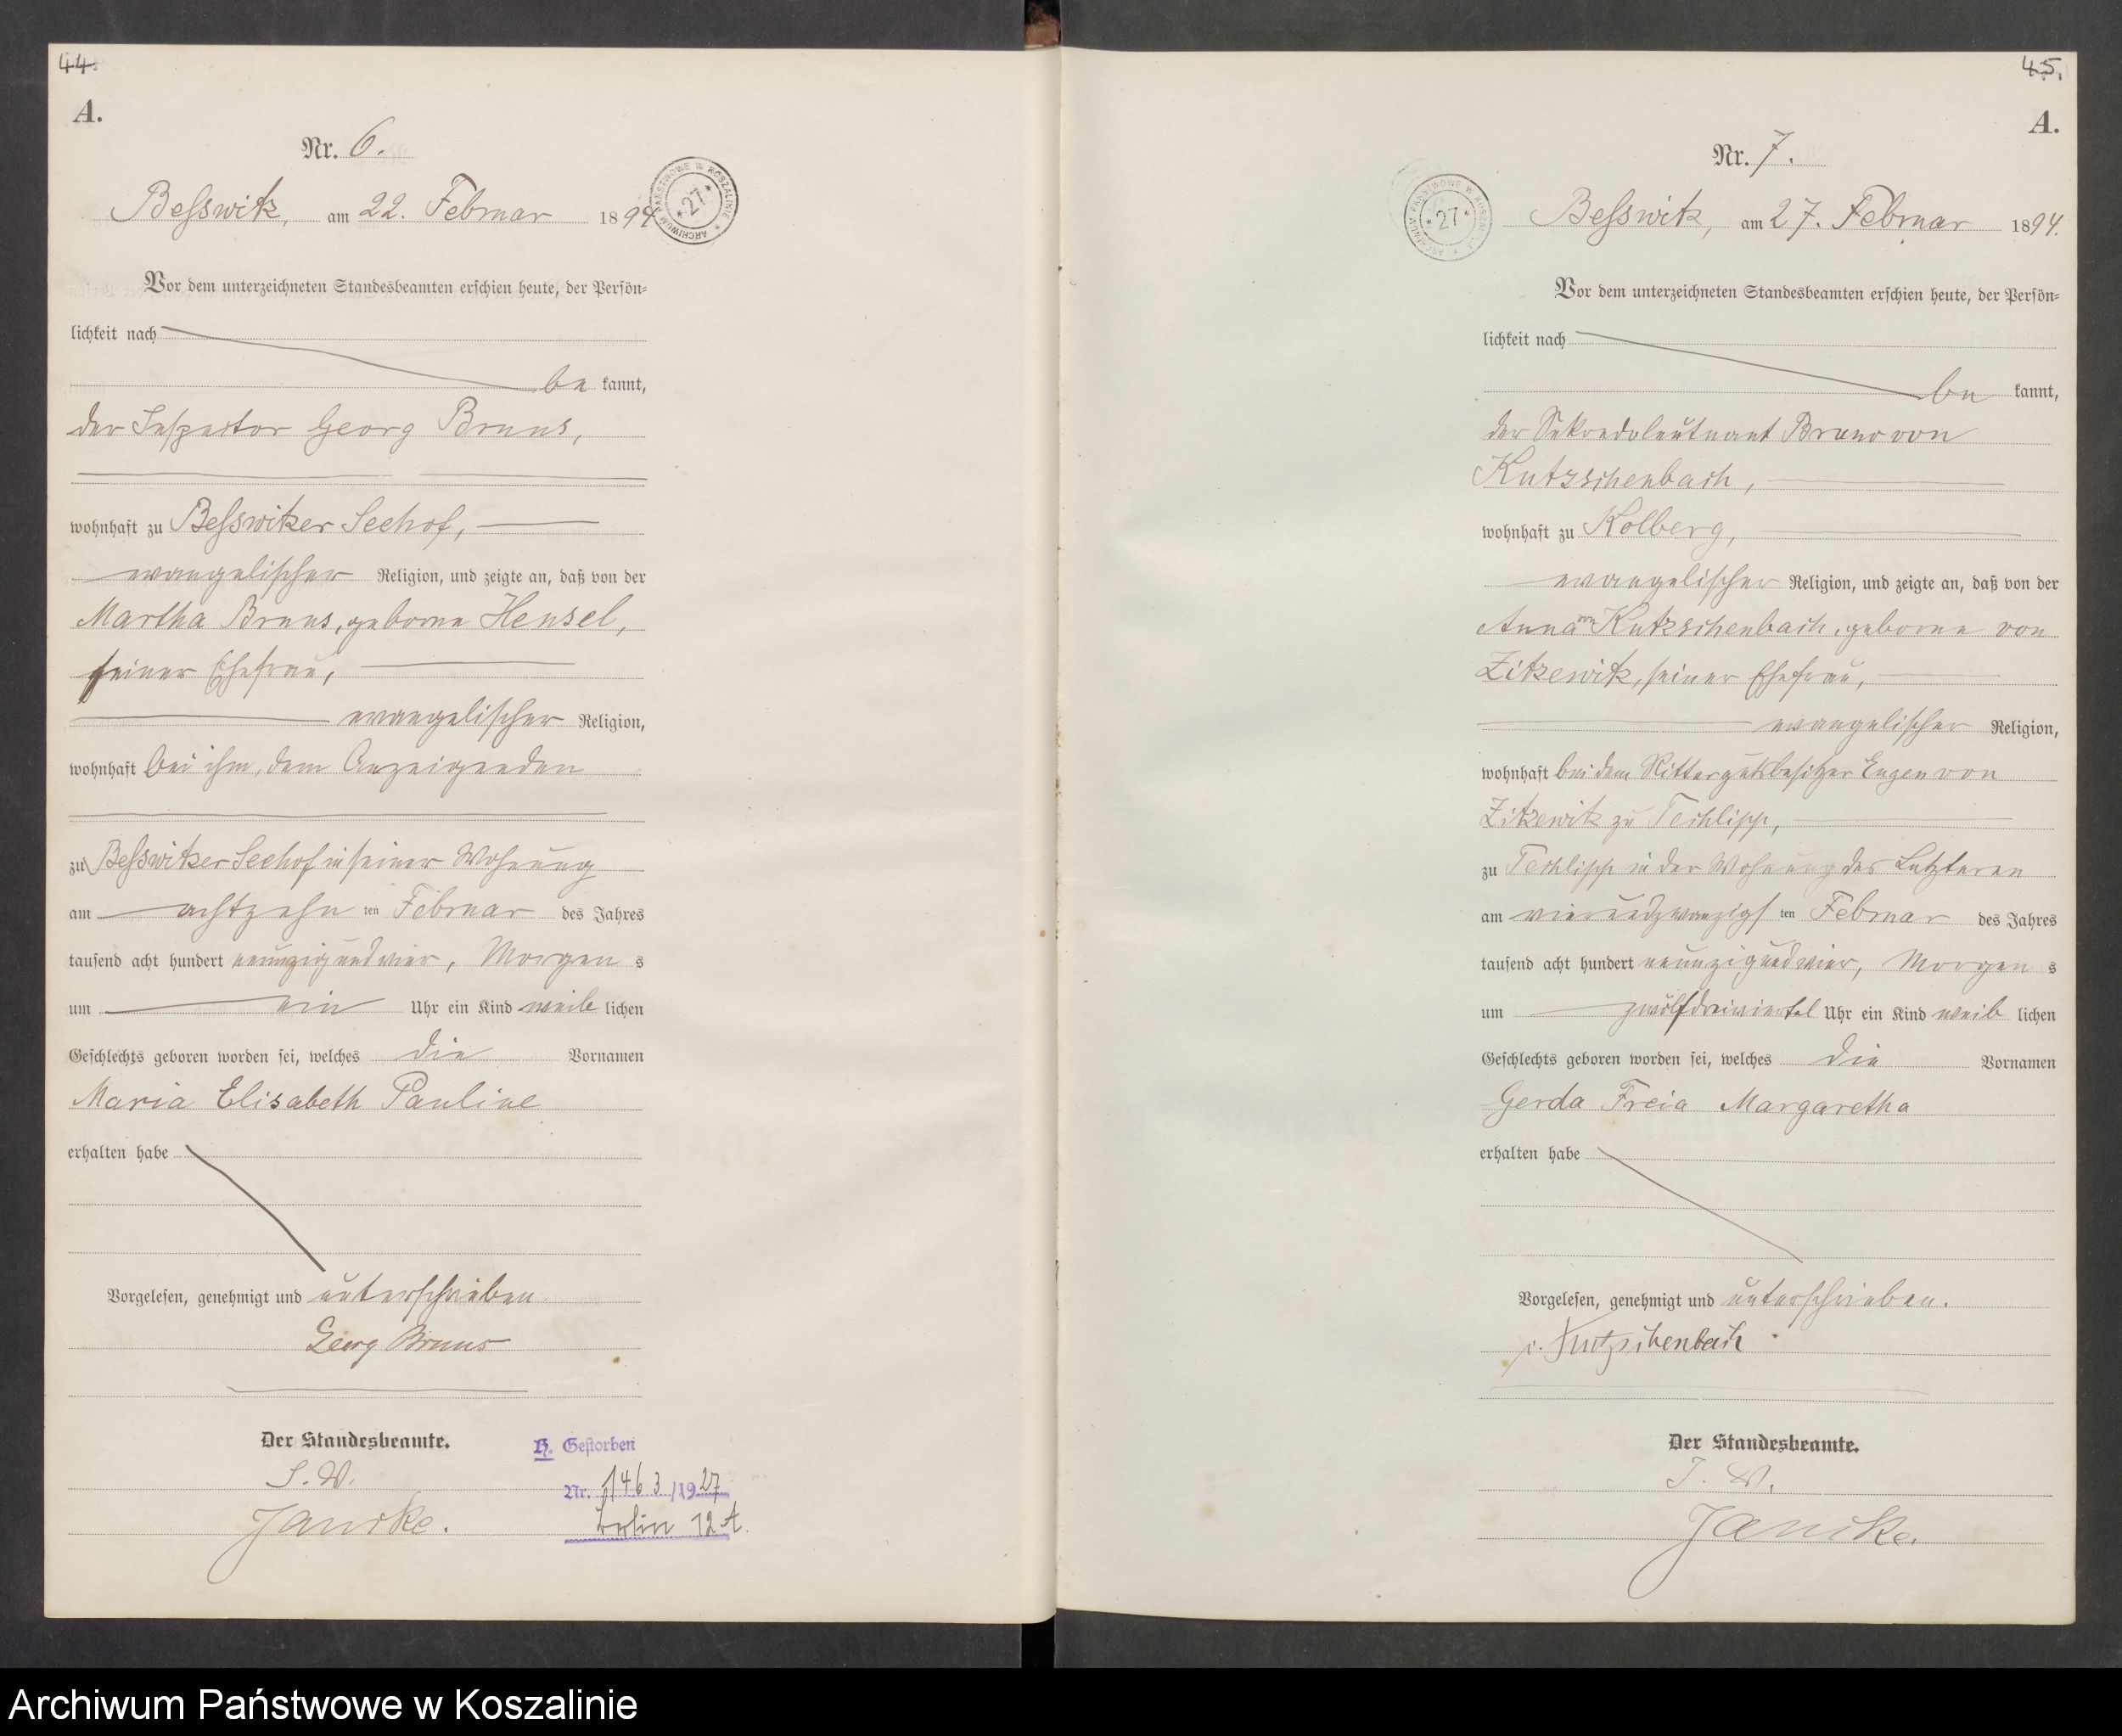 44.
A.
Nr. 6.
Besswitz, am 22. Februar 1894
ARCHIWUM PAŃSTWOWE W KOSZALINIE * 27 *
Vor dem unterzeichneten Standesbeamten erschien heute, der Persön=
lichkeit nach
be kannt,
der Inspector Georg Bruns,
wohnhaft zu Besswitzer Seehof,
evangelischer Religion, und zeigte an, daß von der
Martha Bruns, geborne Hensel,
seiner Ehefrau,
evangelischer Religion,
wohnhaft bei ihm, dem Anzeigenden
zu Besswitzer Seehof in seiner Wohnung
am achtzehn ten Februar des Jahres
tausend acht hundert neunzigundvier, Morgen s
um ein Uhr ein Kind weib lichen
Geschlechts geboren worden sei, welches die Vornamen
Maria Elisabeth Pauline
erhalten habe
Vorgelesen, genehmigt und unterschrieben
Georg Bruns
Der Standesbeamte.
I. V.
Jancke.
H. Gestorben
Nr. 1463/1927
Berlin 12 A.
45.
A.
Nr. 7.
Besswitz, am 27. Februar 1894.
ARCHIWUM PAŃSTWOWE W KOSZALINIE * 27 *
Vor dem unterzeichneten Standesbeamten erschien heute, der Persön=
lichkeit nach
be kannt,
der Sekondeleutnant Bruno von
Kutzschenbach,
wohnhaft zu Kolberg,
evangelischer Religion, und zeigte an, daß von der
Anna von Kutzschenbach, geborne von
Zitzewitz, seiner Ehefrau,
evangelischer Religion,
wohnhaft bei dem Rittergutsbesitzer Eugen von
Zitzewitz zu Techlipp,
zu Techlipp in der Wohnung des Letzteren
am vierundzwanzigs ten Februar des Jahres
tausend acht hundert neunzigundvier, Morgen s
um zwölfdreiviertel Uhr ein Kind weib lichen
Geschlechts geboren worden sei, welches die Vornamen
Gerda Freia Margaretha
erhalten habe
Vorgelesen, genehmigt und unterschrieben.
v. Kutzschenbach
Der Standesbeamte.
I. V.
Jancke.
Archiwum Państwowe w Koszalinie